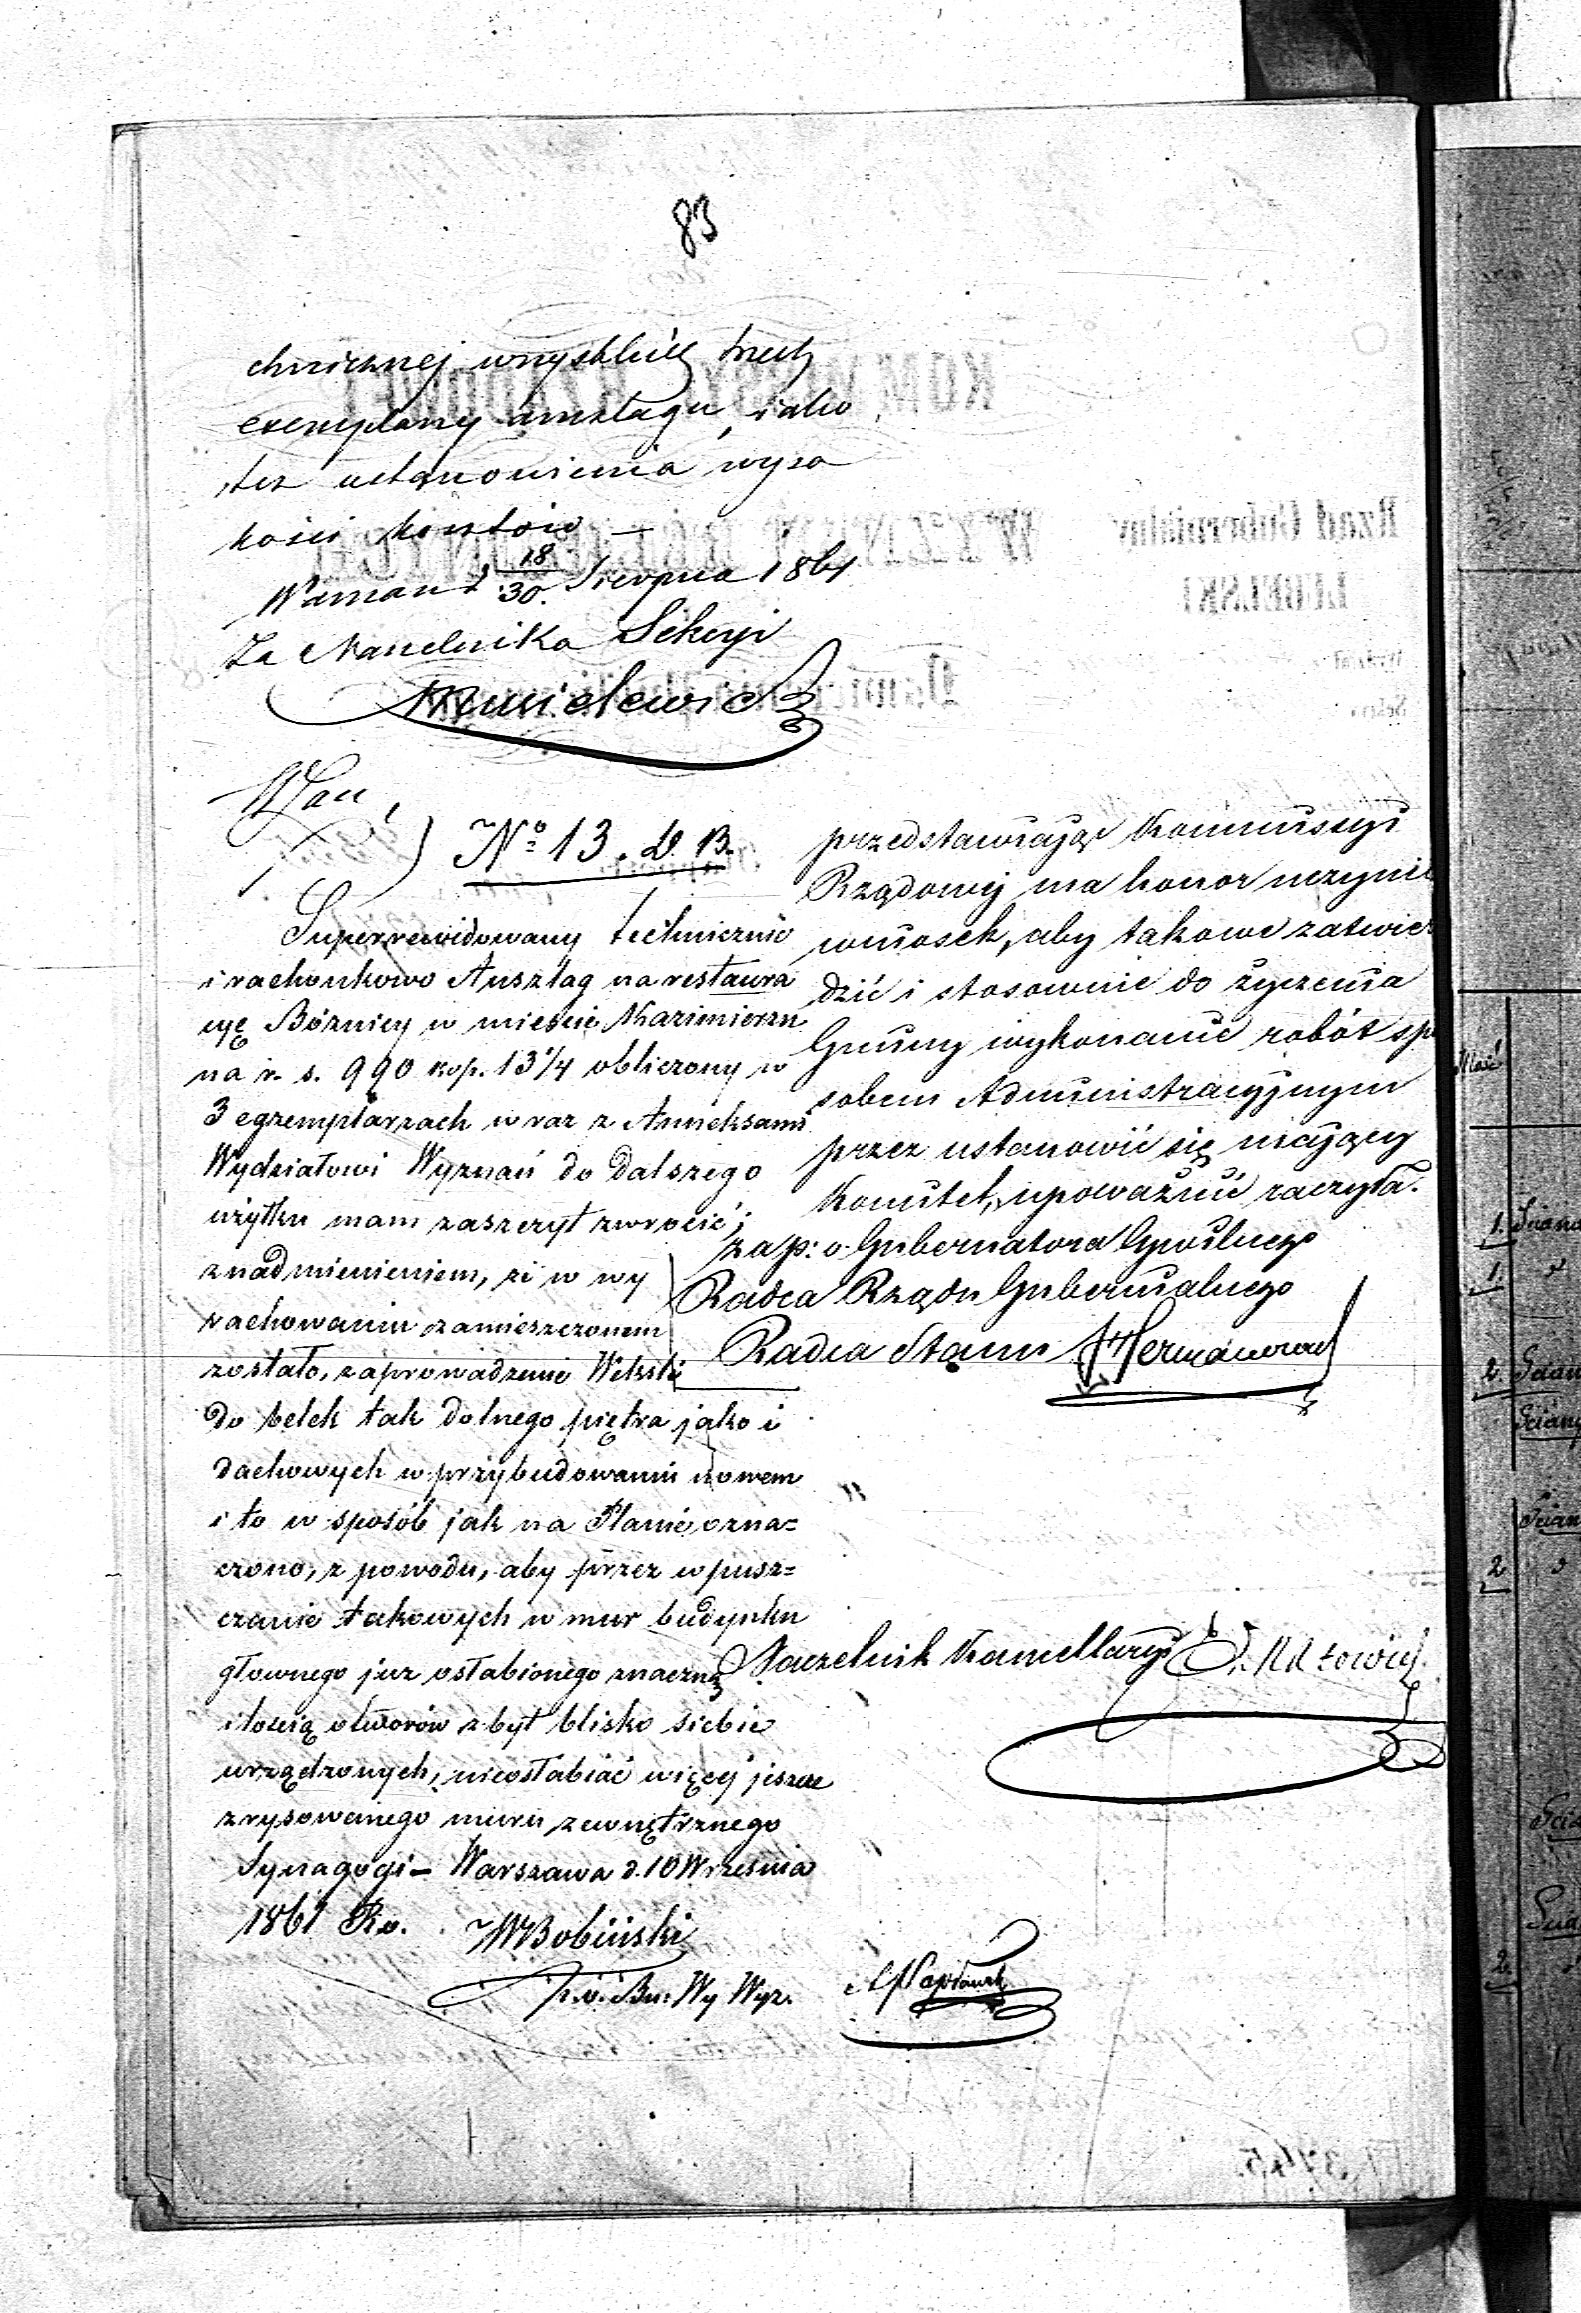 83
chnicznej wszystkich trzech
exemplarzy anszlagu, jako
też ustanowienia wyso
kości kosztów —
Warszawa d. 18/30 Sierpnia 1861
Za Naczelnika Sekcyi
No 13. D. B.
Superrewidowany technicznie
i rachunkowo Anszlag na restaura
cyę Bóżnicy w mieście Kazimierzu
na r. s. 990 kop. 13 1/4 obliczony w
3 egzemplarzach wraz z Anneksami
Wydziałowi Wyznań do dalszego
użytku mam zaszczyt zwrócić;
z nadmienieniem, że w wy
rachowaniu zamieszczonem
zostało, zaprowadzenie
do belek tak dolnego piętra jako i
dachowych w przybudowaniu nowem
i to w sposób jak na Planie ozna=
czono, z powodu, aby przez wpusz=
czanie takowych w mur budynku
głownego juz osłabionego znaczną
ilością otworów zbyt blisko siebie
urządzonych, nieosłabiać więcej jeszcze
zrysowanego muru zewnętrznego
Synagogi — Warszawa d. 10 Września
1861 Ro.
WBobiński
p.o. Bu. Wy Wyz.
przedstawiając Kommissyi
Rządowej ma honor uczynić
wniosek, aby takowe zatwier
dzić i stosownie do życzenia
Gminy wykonanie robót spo
sobem Administracyjnym
przez ustanowić się mający
Komitet, upoważnić raczyła.
za p: o. Gubernatora Cywilnego
Radca Rządu Gubernialnego
Radca Stanu
Naczelnik Kancellaryi